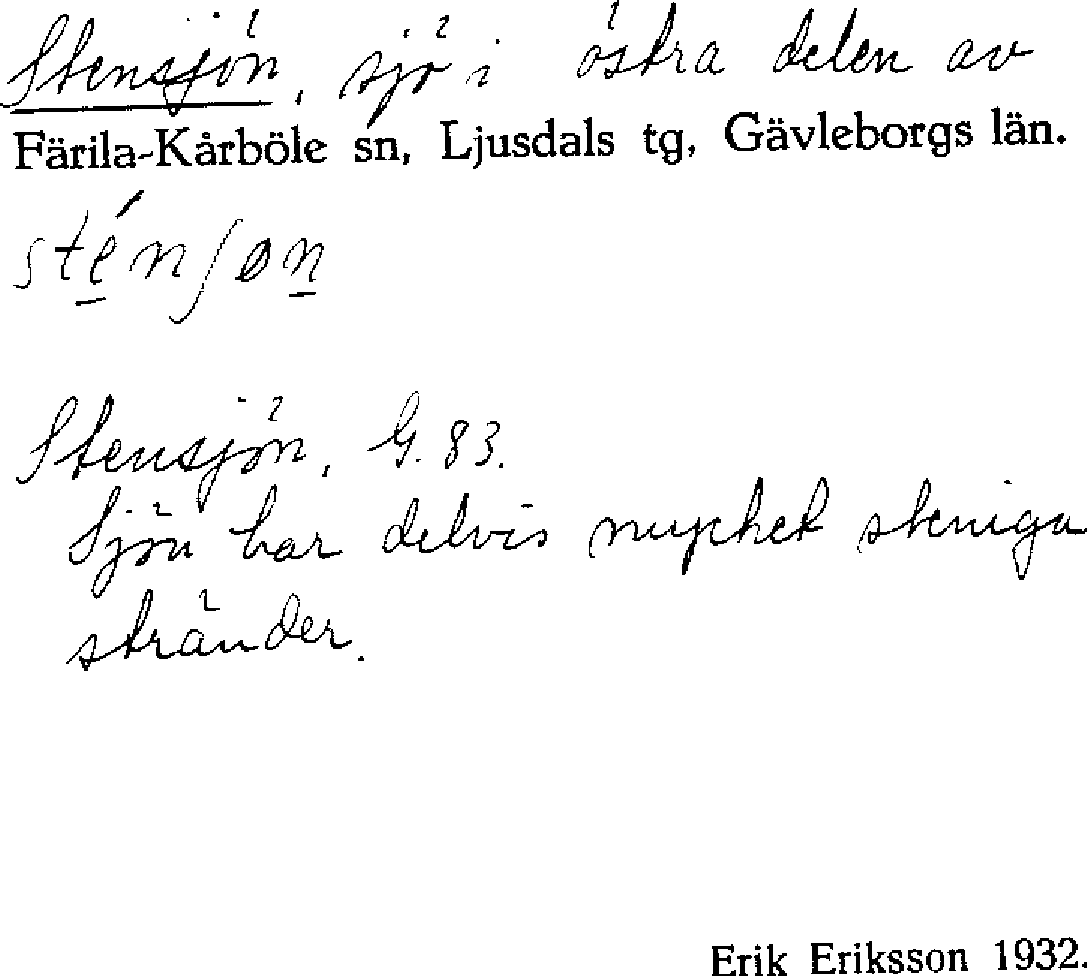 Stensjön, sjö i östra delen av
Färila-Kårböle sn, Ljusdals tg, Gävleborgs län.
sténʃøn
Stensjön, G. 83.
Sjön har delvis mycket steniga
stränder.
Erik Eriksson 1932.